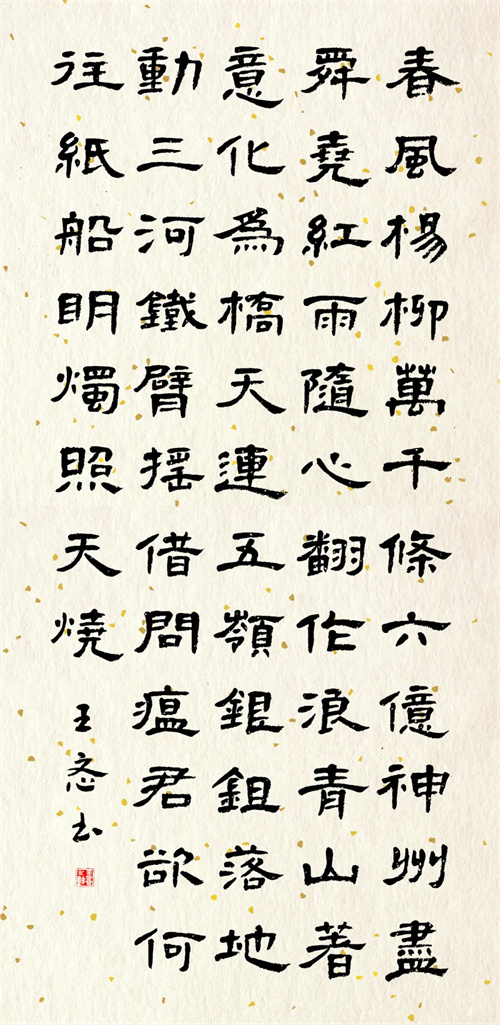 春風楊柳萬千條六億神州盡
舜堯紅雨隨心翻作浪青山著
意化爲橋天連五嶺銀鉏落地
動三河鐵臂摇借問瘟君欲何
往紙船明燭照天燒
王书